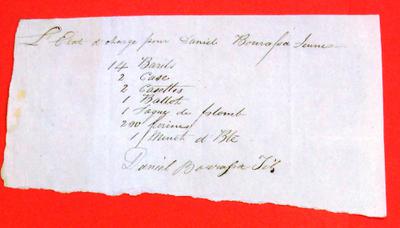 L'Etat d charge pour Daniel Bourassa Jeune
14 Barils
2 Case
2 Casettes
1 Ballot
1 Saque de plomb
200 forines
1 Minot d Blé
Daniel Bourassa